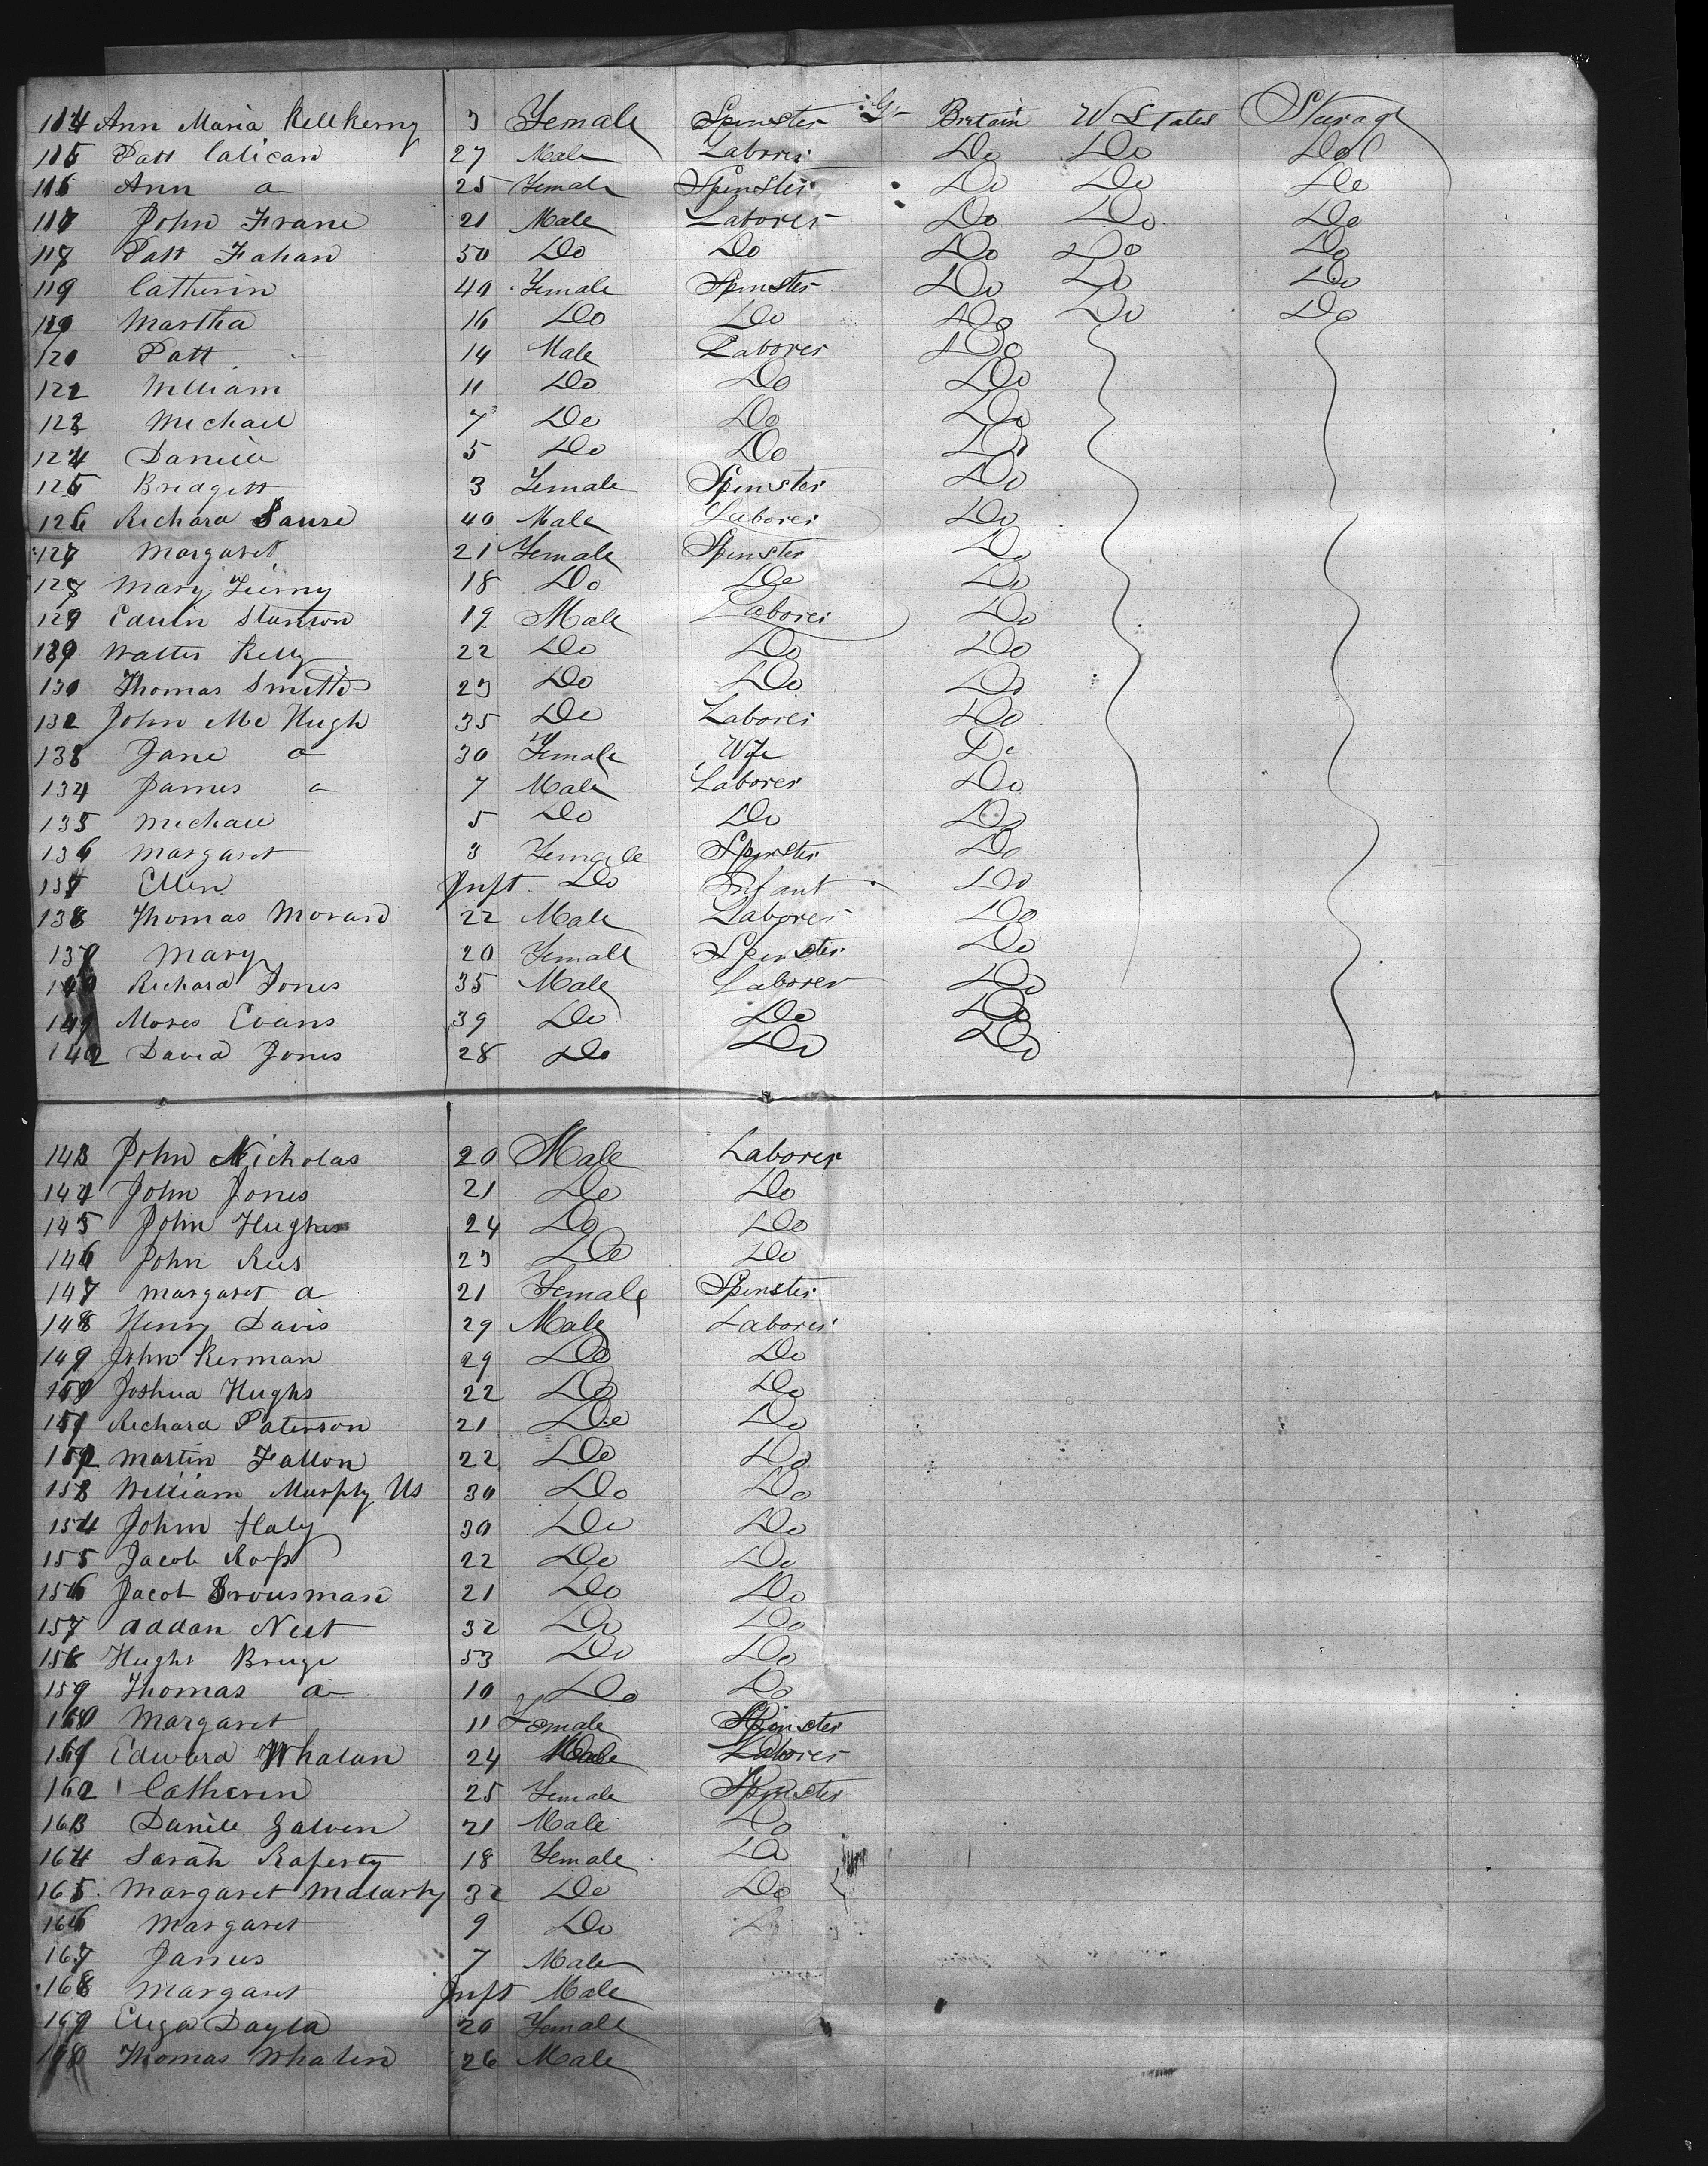 114 Ann Maria Kellkerny 3 Female Spinster Gr Britain U States Steerage
115 Patt Calican 27 Male Laborer Do Do Do
116 Ann a 25 Female Spinster Do Do Do
117 John Frane 21 Male Laborer Do Do Do
118 Patt Fahan 50 Do Do Do Do Do
119 Catherin 40 Female Spinster Do Do Do
Martha 16 Do Do Do Do Do
Patt 14 Male Laborer Do
122 William 11 Do Do Do
123 Michael 7 Do Do Do
124 Daniell 5 Do Do Do
125 Bridgett 3 Female Spinster Do
126 Richard 40 Male Laborer Do
127 Margaret 21 Female Spinster Do
128 Mary 18 Do Do Do
129 Edwin Stanton 19 Male Laborer Do
Walter Kelly 22 Do Do Do
Thomas Smith 23 Do Do Do
132 John Mc Hugh 35 Do Laborer Do
133 Jane a 30 Female Wife Do
134 James a 7 Male Laborer Do
135 Michael 5 Do Do Do
136 Margaret 3 Female Spinster Do
137 Ellen Inft Do Infant Do
138 Thomas Moran 22 Male Laborer Do
139 Mary 20 Female Spinster Do
140 Richard Jones 35 Male Laborer Do
141 Moses Evans 39 Do Do Do
142 David Jones 28 Do Do Do
143 John Nicholas 20 Male Laborer
144 John Jones 21 Do Do
145 John Hughes 24 Do Do
146 John Rees 23 Do Do
147 Margaret a 21 Female Spinster
148 Henry Davis 29 Male Laborer
149 John Kerman 29 Do Do
150 Joshua Hughs 22 Do Do
151 Richard Paterson 21 Do Do
152 Martin Fallon 22 Do Do
153 William Murphy US 30 Do Do
154 John Haly 30 Do Do
155 Jacob Ross 22 Do Do
156 Jacob 21 Do Do
157 Addan Neet 32 Do Do
158 Hught Bruge 53 Do Do
159 Thomas a 10 Do Do
160 Margaret 11 Female Spinster
161 Edward Whalan 24 Male Laborer
162 Catherin 25 Female Spinster
163 Daniel Galven 21 Male Do
164 Sarah Raferty 18 Female Do
165 Margaret Malarky 32 Do Do
166 Margaret 9 Do Do
167 James 7 Male
168 Margaret Inft Male
169 Eliza Dayla 20 Female
Thomas Whalen 26 Male